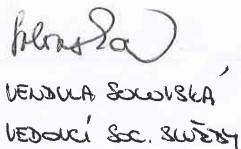 VENDULA SOKOVSKÁ
VEDOUCÍ SOC. SLUŽBY